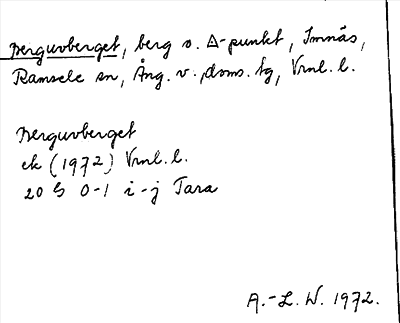 Berguvberget, berg o. △-punkt, Imnäs,
Ramsele sn, Ång. v. doms. tg, Vrml. l.
Berguvberget
ek (1972) Vrml. l.
20 G 0-1 i-j Tara
A.-L. W. 1972.